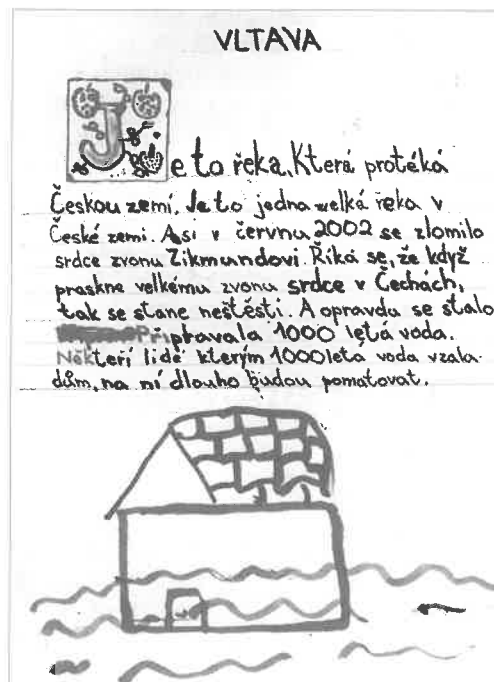 VLTAVA
Je to řeka, Která protéká
Českou zemí. Je to jedna velká řeka v
České zemi. Asi v červnu 2002 se zlomilo
srdce zvonu Zikmundovi. Říká se, že když
praskne velkému zvonu srdce v Čechách,
tak se stane neštěstí. A opravdu se stalo
Připlavala 1000 letá voda.
Někteří lidé kterým 1000letá voda vzala
dům, na ní dlouho budou pamatovat.